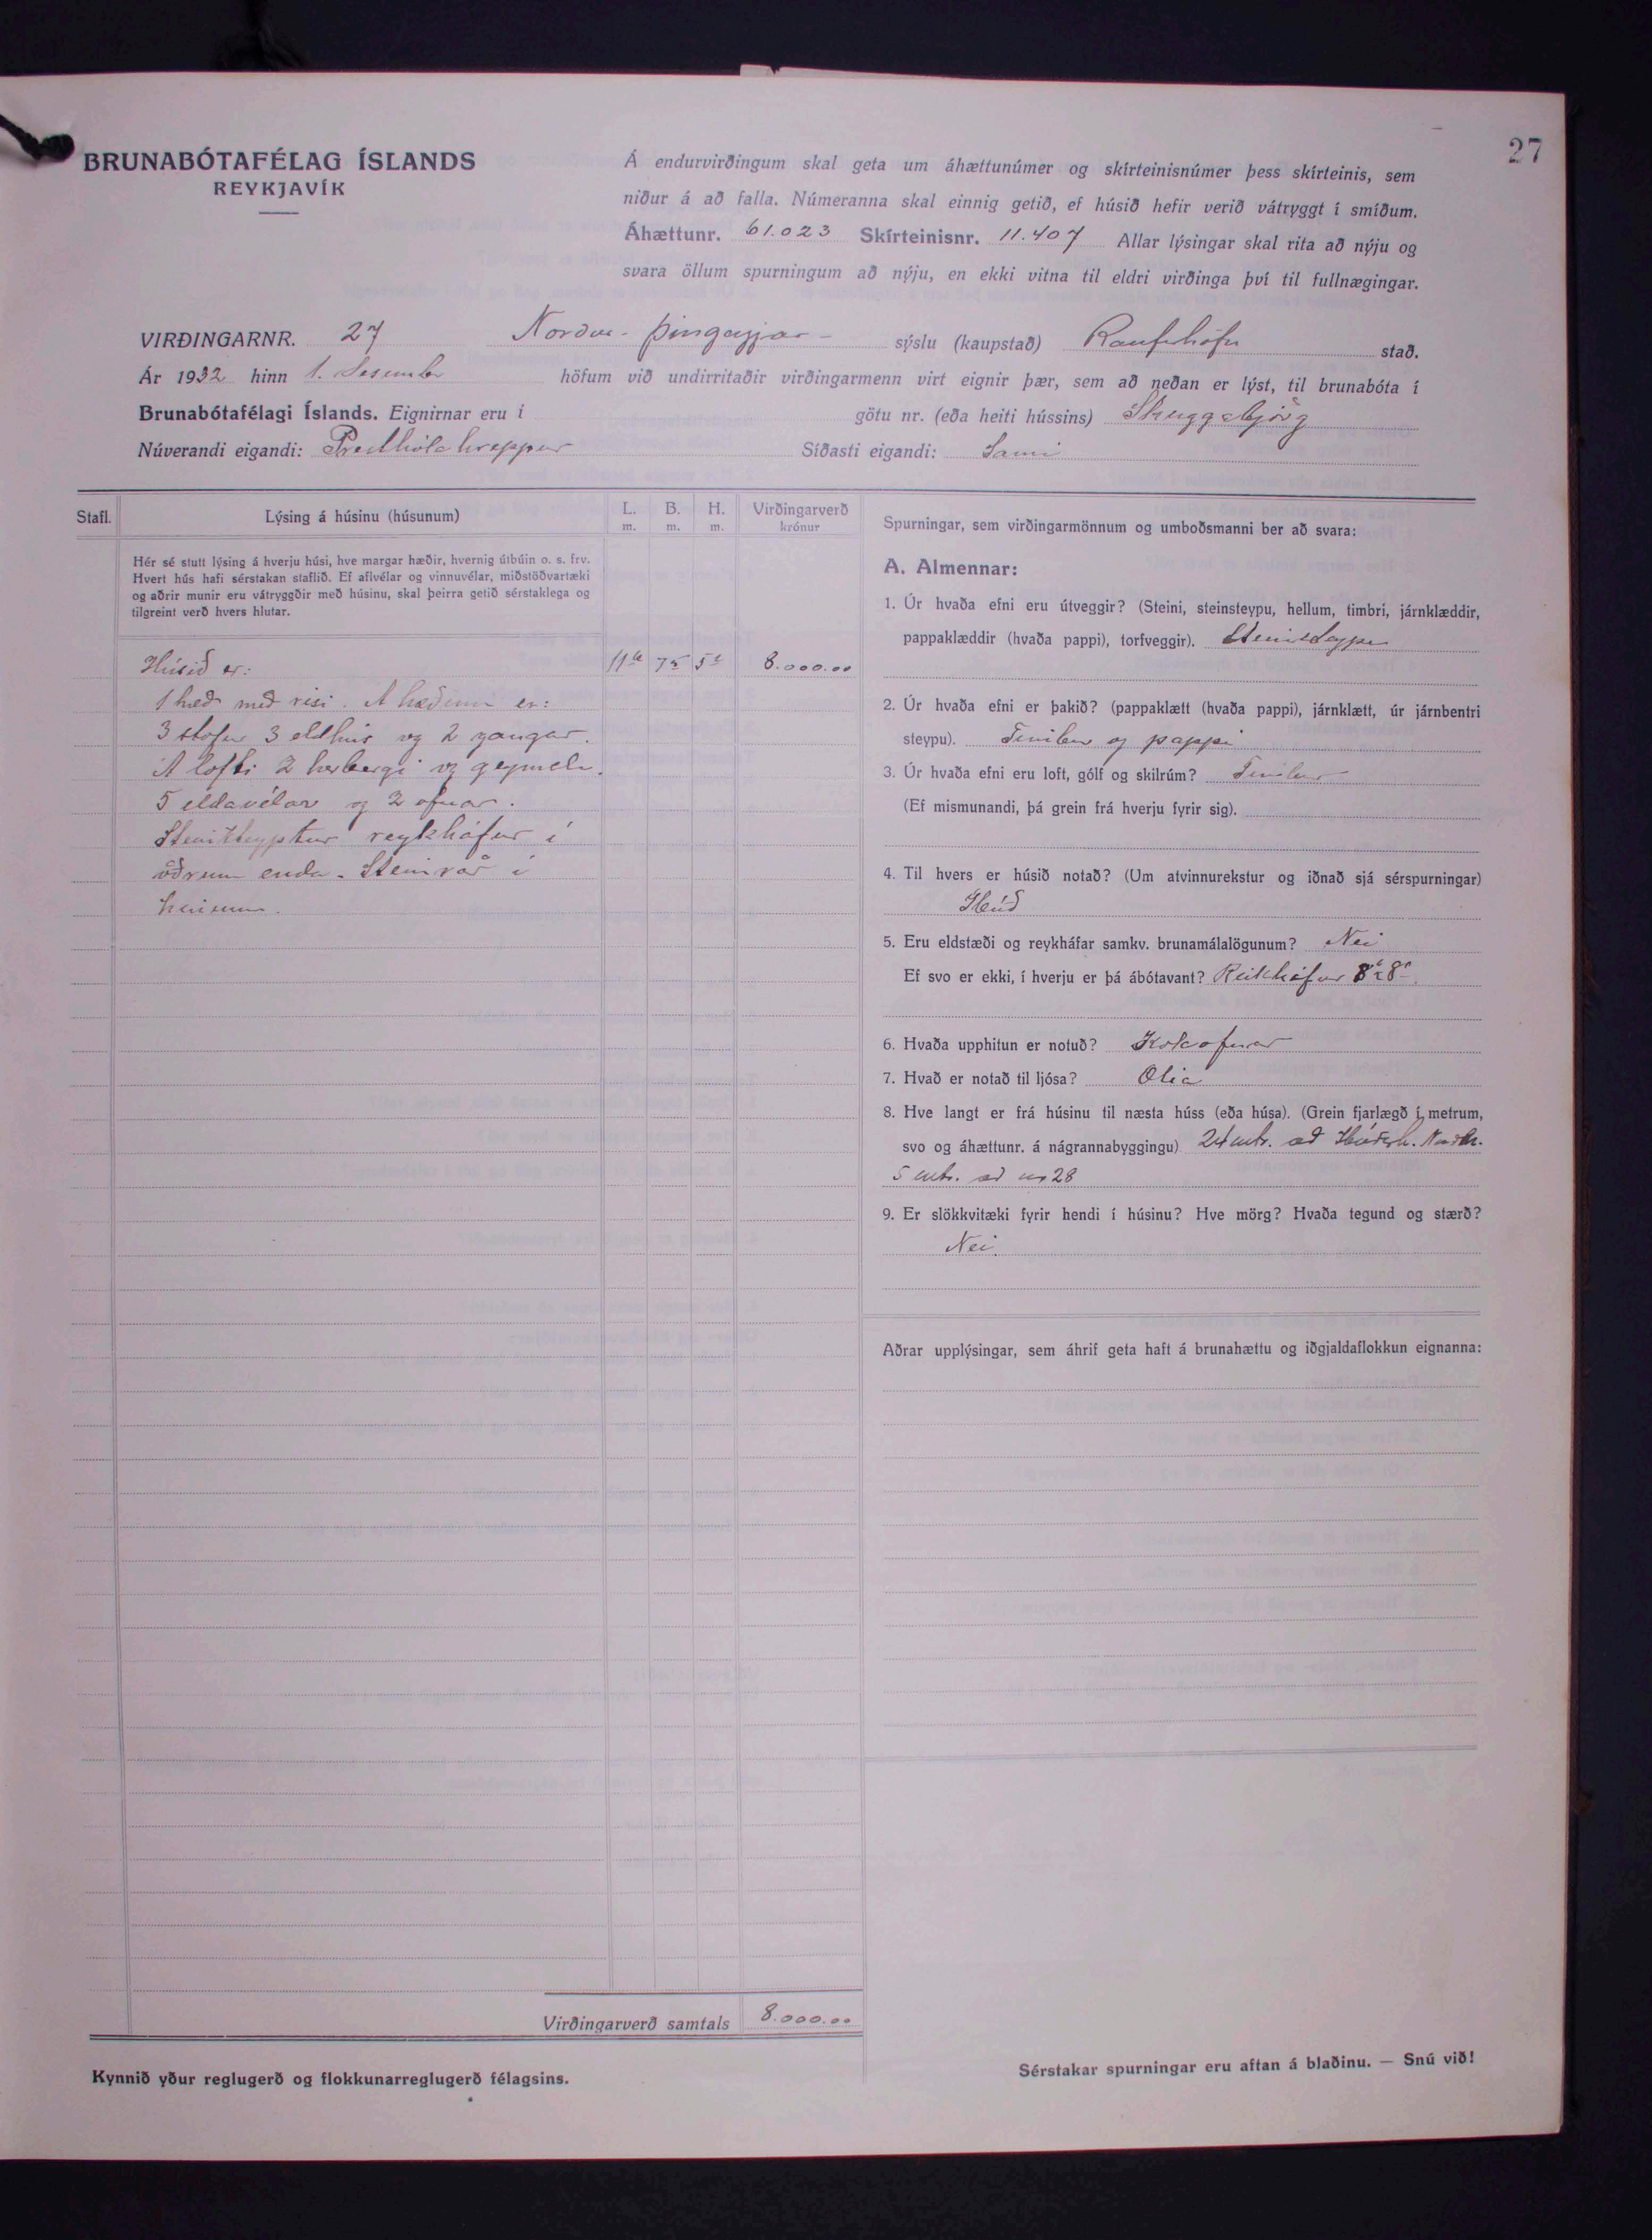 27
BRUNABÓTAFÉLAG ÍSLANDS
REYKJAVÍK
Á endurvirðingum skal geta um áhættunúmer og skírteinisnúmer þess skírteinis, sem
niður á að falla. Númeranna skal einnig getið, ef húsið hefir verið vátryggt í smíðum.
Áhættunr. 61.023 Skírteinisnr. 11.407 Allar lýsingar skal rita að nýju og
svara öllum spurningum að nýju, en ekki vitna til eldri virðinga því til fullnægingar.
VIRÐINGARNR. 27 Norður-Þingeyjar- sýslu (kaupstað) Raufarhöfn stað.
Ár 1932 hinn 1. Desember höfum við undirritaðir virðingarmenn virt eignir þær, sem að neðan er lýst, til brunabóta í
Brunabótafélagi Íslands. Eignirnar eru í götu nr. (eða heiti hússins) Skuggabjörg
Núverandi eigandi: Presthólahreppur Síðasti eigandi: Sami
Stafl. Lýsing á húsinu (húsunum) L. m. B. m. H. m. Virðingarverð krónur
Hér sé stutt lýsing á hverju húsi, hve margar hæðir, hvernig útbúin o. s. frv.
Hvert hús hafi sérstakan staflið. Ef aflvélar og vinnuvélar, miðstöðvartæki
og aðrir munir eru vátryggðir með húsinu, skal þeirra getið sérstaklega og
tilgreint verð hvers hlutar.
Húsið er: 8.000.00
1 hæð með risi. Á hæðinni er:
3 stofur 3 eldhús og 2 gangar.
Á lofti 2 herbergi og geymsla.
5 eldavélar og 2 ofnar.
Steinsteyptur reykháfur í
öðrum enda. Steinrör í
hinum.
Virðingarverð samtals 8.000.00
Kynnið yður reglugerð og flokkunarreglugerð félagsins.
Spurningar, sem virðingarmönnum og umboðsmanni ber að svara:
A. Almennar:
1. Úr hvaða efni eru útveggir? (Steini, steinsteypu, hellum, timbri, járnklæddir,
pappaklæddir (hvaða pappi), torfveggir). Steinsteypu
2. Úr hvaða efni er þakið? (pappaklætt (hvaða pappi), járnklætt, úr járnbentri
steypu). Timbur og pappi
3. Úr hvaða efni eru loft, gólf og skilrúm? Timbur
(Ef mismunandi, þá grein frá hverju fyrir sig).
4. Til hvers er húsið notað? (Um atvinnurekstur og iðnað sjá sérspurningar)
Íbúð
5. Eru eldstæði og reykháfar samkv. brunamálalögunum? Nei
Ef svo er ekki, í hverju er þá ábótavant? Reikháfur
6. Hvaða upphitun er notuð? Kolaofnar
7. Hvað er notað til ljósa? Olia
8. Hve langt er frá húsinu til næsta húss (eða húsa). (Grein fjarlægð í metrum,
svo og áhættunr. á nágrannabyggingu) 24 mtr. að
5 mtr. að nr 28
9. Er slökkvitæki fyrir hendi í húsinu? Hve mörg? Hvaða tegund og stærð?
Nei.
Aðrar upplýsingar, sem áhrif geta haft á brunahættu og iðgjaldaflokkun eignanna:
Sérstakar spurningar eru aftan á blaðinu. — Snú við!